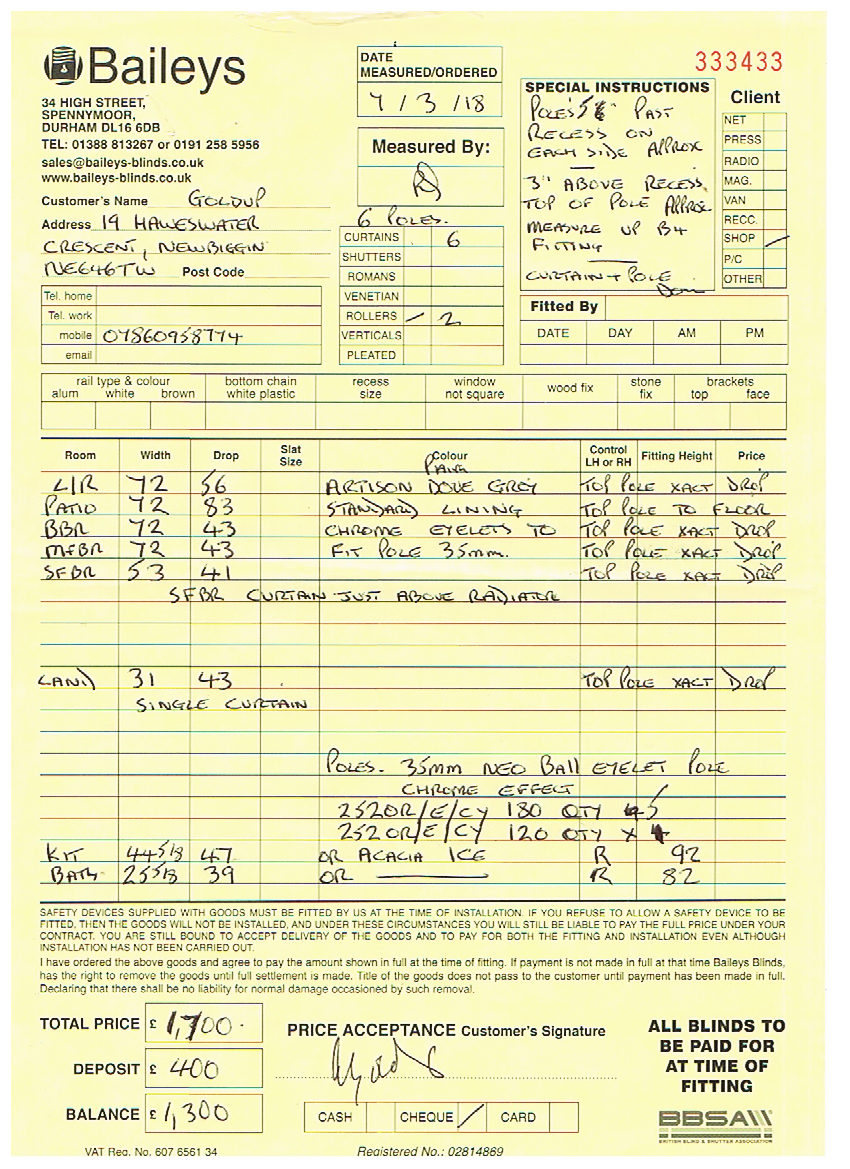 Baileys
34 HIGH STREET,
SPENNYMOOR,
DURHAM DL16 6DB
TEL: 01388 813267 or 0191 258 5956
sales@baileys-blinds.co.uk
www.baileys-blinds.co.uk
Customer's Name GOLDUP
Address 19 HAWESWATER
CRESCENT, NEWBIGGIN
NE646TW Post Code
Tel. home
Tel. work
mobile 07860958774
email
DATE
MEASURED/ORDERED
7/3/18
Measured By:
6 POLES.
CURTAINS 6
SHUTTERS
ROMANS
VENETIAN
ROLLERS / 2
VERTICALS
PLEATED
333433
SPECIAL INSTRUCTIONS
POLES PAST
RECESS ON
EACH SIDE APPROX
3" ABOVE RECESS
TOP OF POLE APPROX
MEASURE UP B4
FITTING
CURTAIN + POLE
Client
NET
PRESS
RADIO
MAG.
VAN
RECC.
SHOP /
P/C
OTHER
Fitted By
DATE DAY AM PM
rail type & colour bottom chain recess window wood fix stone brackets
alum white brown white plastic size not square fix top face
Room Width Drop Slat Size Colour Control LH or RH Fitting Height Price
L/R 72 56 ARTISON DOVE GREY TOP POLE XACT DROP
PATIO 72 83 STANDARD LINING TOP POLE TO FLOOR
BBR 72 43 CHROME EYELETS TO TOP POLE XACT DROP
MFBR 72 43 FIT POLE 35mm. TOP POLE XACT DROP
SFBR 53 41 TOP POLE XACT DROP
SFBR CURTAIN JUST ABOVE RADIATOR
LAND 31 43 TOP POLE XACT DROP
SINGLE CURTAIN
POLES. 35mm NEO Ball EYELET POLE
CHROME EFFECT
252OR/E/CY 180 QTY 5
252OR/E/CY 120 QTY X
KIT 44 5/8 47 OR ACACIA ICE R 92
BATH 25 5/8 39 OR R 82
SAFETY DEVICES SUPPLIED WITH GOODS MUST BE FITTED BY US AT THE TIME OF INSTALLATION. IF YOU REFUSE TO ALLOW A SAFETY DEVICE TO BE
FITTED, THEN THE GOODS WILL NOT BE INSTALLED, AND UNDER THESE CIRCUMSTANCES YOU WILL STILL BE LIABLE TO PAY THE FULL PRICE UNDER YOUR
CONTRACT. YOU ARE STILL BOUND TO ACCEPT DELIVERY OF THE GOODS AND TO PAY FOR BOTH THE FITTING AND INSTALLATION EVEN ALTHOUGH
INSTALLATION HAS NOT BEEN CARRIED OUT.
I have ordered the above goods and agree to pay the amount shown in full at the time of fitting. If payment is not made in full at that time Baileys Blinds,
has the right to remove the goods until full settlement is made. Title of the goods does not pass to the customer until payment has been made in full.
Declaring that there shall be no liability for normal damage occasioned by such removal.
TOTAL PRICE £ 1,700.
DEPOSIT £ 400
BALANCE £ 1,300
PRICE ACCEPTANCE Customer's Signature
CASH CHEQUE / CARD
ALL BLINDS TO
BE PAID FOR
AT TIME OF
FITTING
BBSA
BRITISH BLIND & SHUTTER ASSOCIATION
VAT Reg. No. 607 6561 34
Registered No.: 02814869